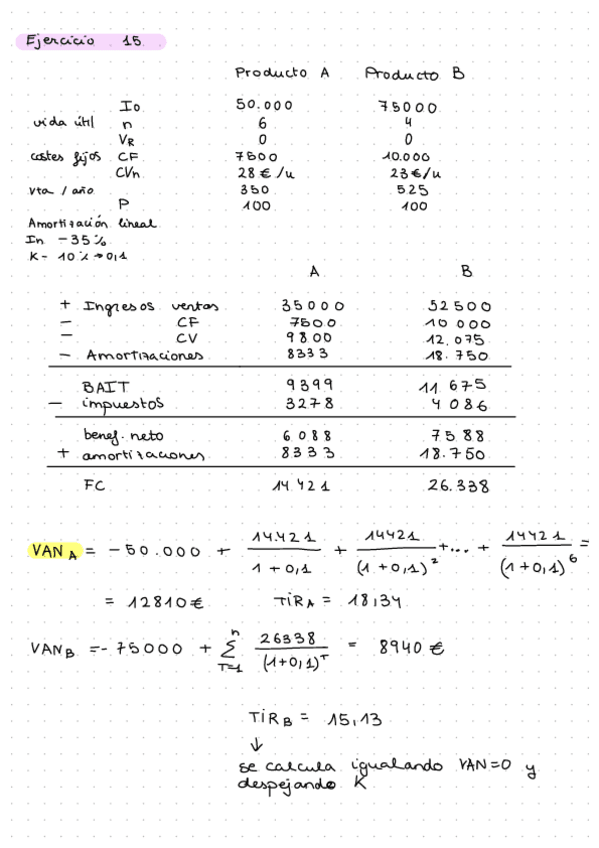 Ejercicio 15
Producto A Producto B
Io 50.000 75000
vida útil n 6 4
VR 0 0
costes fijos CF 7500 10.000
CVn 28 €/u 23 €/u
vta / año 350 525
P 100 100
Amortización lineal
In - 35%
K - 10% → 0,1
A B
+ Ingresos ventas 35000 52500
- CF 7500 10 000
- CV 9800 12.075
- Amortizaciones 8333 18.750
BAIT 9399 11.675
- impuestos 3278 4086
benef. neto 6088 7588
+ amortizaciones 8333 18.750
FC 14.421 26.338
VAN A = -50.000 + 14.421 / 1+0,1 + 14421 / (1+0,1)² + ... + 14421 / (1+0,1)⁶ =
= 12810 € TIR A = 18,34
VAN B = -75000 + Σ n T=1 26338 / (1+0,1)ᵀ = 8940 €
TIR B = 15,13
↓
se calcula igualando VAN=0 y
despejando K